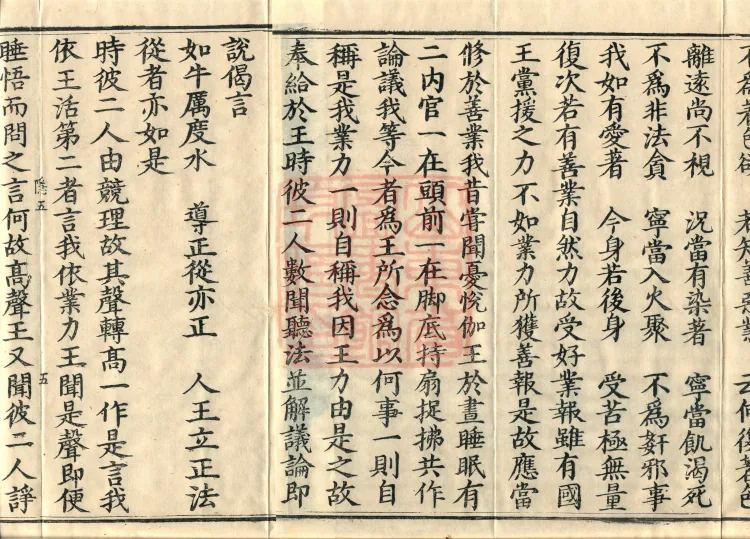 離遠尚不視 況當有染著 寧當飢渴死
不爲非法貪 寧當入火聚 不爲姧邪事
我如有愛著 今身若後身 受苦極無量
復次若有善業自然力故受好業報雖有國
王黨援之力不如業力所獲善報是故應當
修於善業我昔曾聞憂悅伽王於晝睡眠有
二内官一在頭前一在脚底持扇捉拂共作
論議我等今者爲王所念爲以何事一則自
稱是我業力一則自稱我因王力由是之故
奉給於王時彼二人數聞聽法並解議論即
說偈言
如牛厲度水 導正從亦正 人王立正法
從者亦如是
時彼二人由競理故其聲轉髙一作是言我
依王活第二者言我依業力王聞是聲即便
五
五
睡悟而問之言何故髙聲王又聞彼二人諍